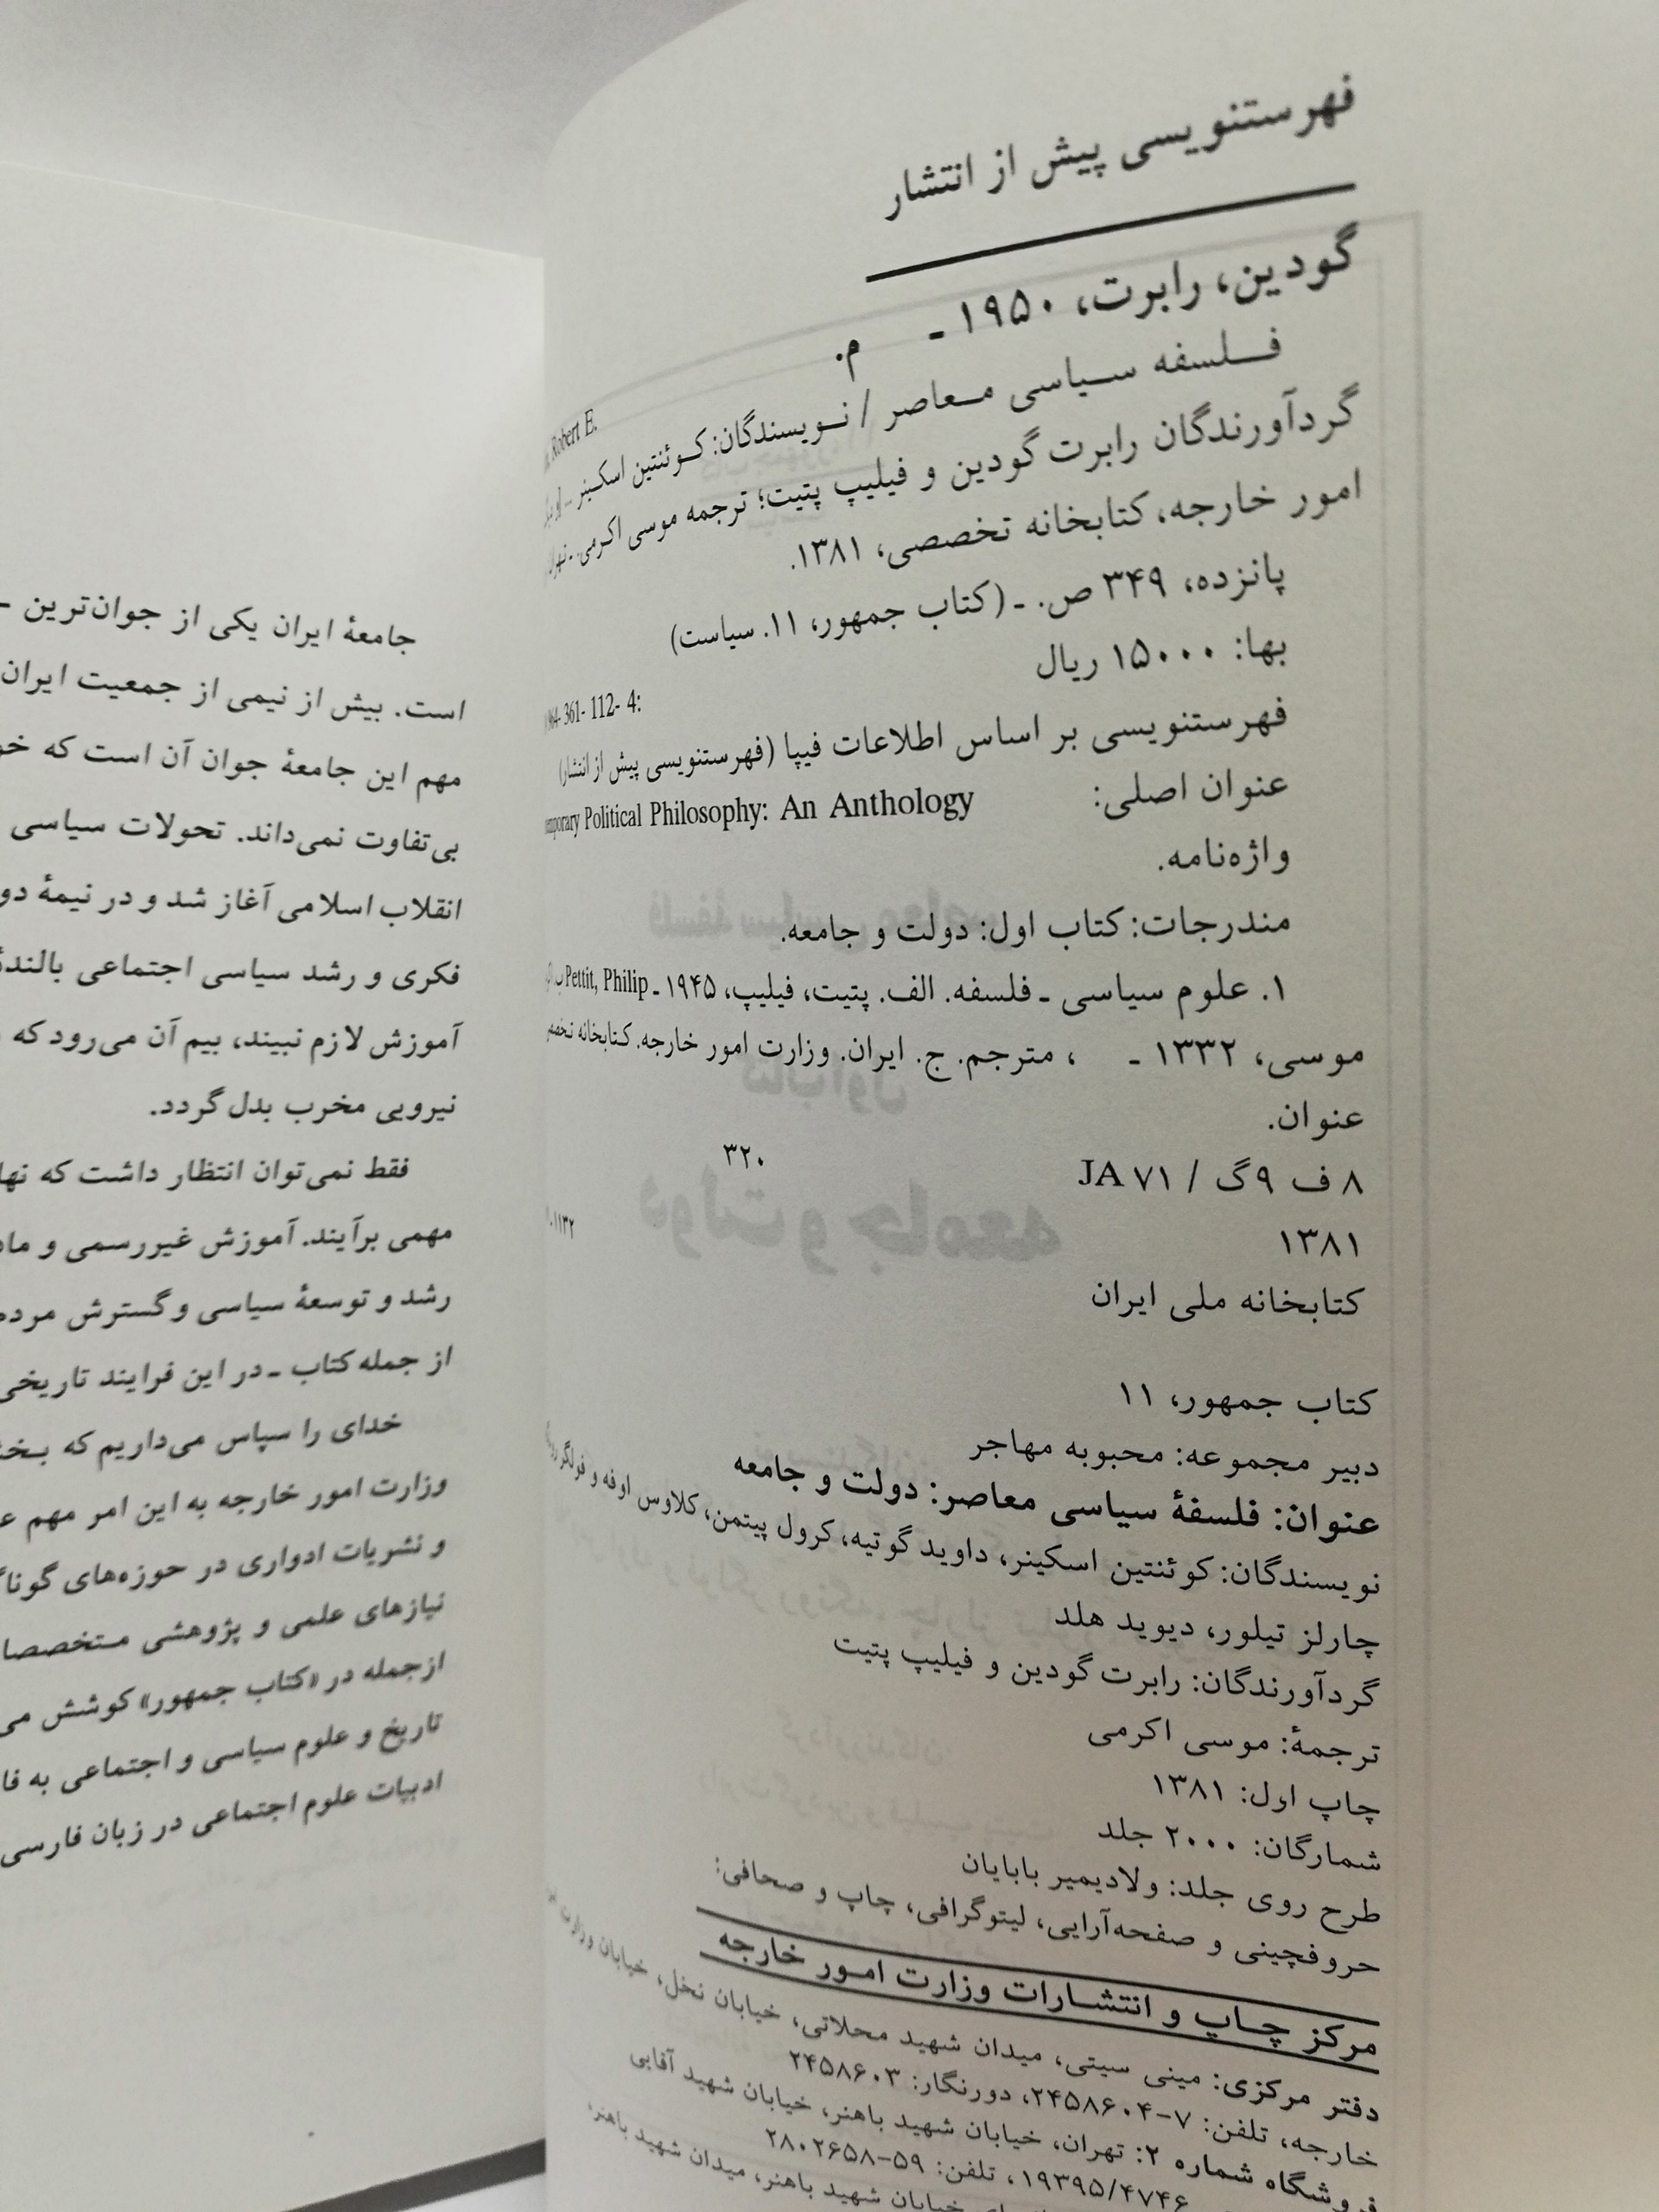 فهرستنویسی پیش از انتشار
گودین، رابرت، ۱۹۵۰ ـ م.
Robert E.
فلسفه سیاسی معاصر / نویسندگان: کوئنتین اسکینر
گردآورندگان رابرت گودین و فیلیپ پتیت؛ ترجمه موسی اکرمی. ـ
امور خارجه، کتابخانه تخصصی، ۱۳۸۱.
پانزده، ۳۴۹ ص. ـ (کتاب جمهور، ۱۱. سیاست)
بها: ۱۵۰۰۰ ریال
361- 112- 4:
فهرستنویسی بر اساس اطلاعات فیپا (فهرستنویسی پیش از انتشار)
عنوان اصلی: Political Philosophy: An Anthology
واژه‌نامه.
مندرجات: کتاب اول: دولت و جامعه.
۱. علوم سیاسی ـ فلسفه. الف. پتیت، فیلیپ، ۱۹۴۵ ـ Pettit, Philip
موسی، ۱۳۳۲ ـ ، مترجم. ج. ایران. وزارت امور خارجه. کتابخانه
عنوان.
۸ ف ۹گ / JA ۷۱ ۳۲۰
۱۳۸۱
کتابخانه ملی ایران
کتاب جمهور، ۱۱
دبیر مجموعه: محبوبه مهاجر
عنوان: فلسفهٔ سیاسی معاصر: دولت و جامعه
نویسندگان: کوئنتین اسکینر، داوید گوتیه، کرول پیتمن، کلاوس اوفه و فولگر
چارلز تیلور، دیوید هلد
گردآورندگان: رابرت گودین و فیلیپ پتیت
ترجمهٔ: موسی اکرمی
چاپ اول: ۱۳۸۱
شمارگان: ۲۰۰۰ جلد
طرح روی جلد: ولادیمیر بابایان
حروفچینی و صفحه‌آرایی، لیتوگرافی، چاپ و صحافی:
مرکز چاپ و انتشارات وزارت امور خارجه
دفتر مرکزی: مینی سیتی، میدان شهید محلاتی، خیابان نخل، خیابان وزارت
خارجه، تلفن: ۷-۲۴۵۸۶۰۴، دورنگار: ۲۴۵۸۶۰۳
فروشگاه شماره ۲: تهران، خیابان شهید باهنر، خیابان شهید آقایی
۱۹۳۹۵/۴۷۴۶، تلفن: ۵۹-۲۸۰۲۶۵۸
خیابان شهید باهنر، میدان شهید باهنر،
جامعهٔ ایران یکی از جوان‌ترین ـ
است. بیش از نیمی از جمعیت ایران
مهم این جامعهٔ جوان آن است که
بی‌تفاوت نمی‌داند. تحولات سیاسی
انقلاب اسلامی آغاز شد و در نیمهٔ
فکری و رشد سیاسی اجتماعی
آموزش لازم نبیند، بیم آن می‌رود که
نیرویی مخرب بدل گردد.
فقط نمی‌توان انتظار داشت که
مهمی برآیند. آموزش غیررسمی و
رشد و توسعهٔ سیاسی و گسترش
از جمله کتاب ـ در این فرایند تاریخی
خدای را سپاس می‌داریم که
وزارت امور خارجه به این امر مهم
و نشریات ادواری در حوزه‌های
نیازهای علمی و پژوهشی
ازجمله در «کتاب جمهور» کوشش
تاریخ و علوم سیاسی و اجتماعی به
ادبیات علوم اجتماعی در زبان فارسی